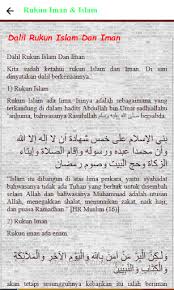 Rukun Iman & Islam
Dalil Rukun Islam Dan Iman
Dalil Rukun Islam Dan Iman
Kita sudah ketahui rukun Islam dan Iman. Di sini
dinyatakan dalil berkenaannya.
1) Rukun Islam
Rukun Islam ada lima. Ianya adalah sebagaimana yang
dinyatakan di dalam hadits Abdullah bin Umar radhiallahu
'anhuma, bahwasanya Rasulullah صلى الله عليه وسلم bersabda:
بني الإسلام على خمس شهادة أن لا إله إلا الله
وأن محمدا عبده ورسوله وإقام الصلاة وإيتاء
الزكاة وحج البيت وصوم رمضان
"Islam itu dibangun di atas lima perkara, yaitu: syahadat
bahwasanya tidak ada Tuhan yang berhak untuk disembah
selain Allah dan bahwasanya Muhammad adalah utusan
Allah, menegakkan shalat, menunaikan zakat, naik haji,
dan puasa Ramadhan." [HR Muslim (16)]
2) Rukun Iman
Rukun iman ada enam.
وَلَٰكِنَّ الْبِرَّ مَنْ آمَنَ بِاللَّهِ وَالْيَوْمِ الْآخِرِ وَالْمَلَائِكَةِ
akan tetapi sesungguhnya kebajikan itu ialah beriman